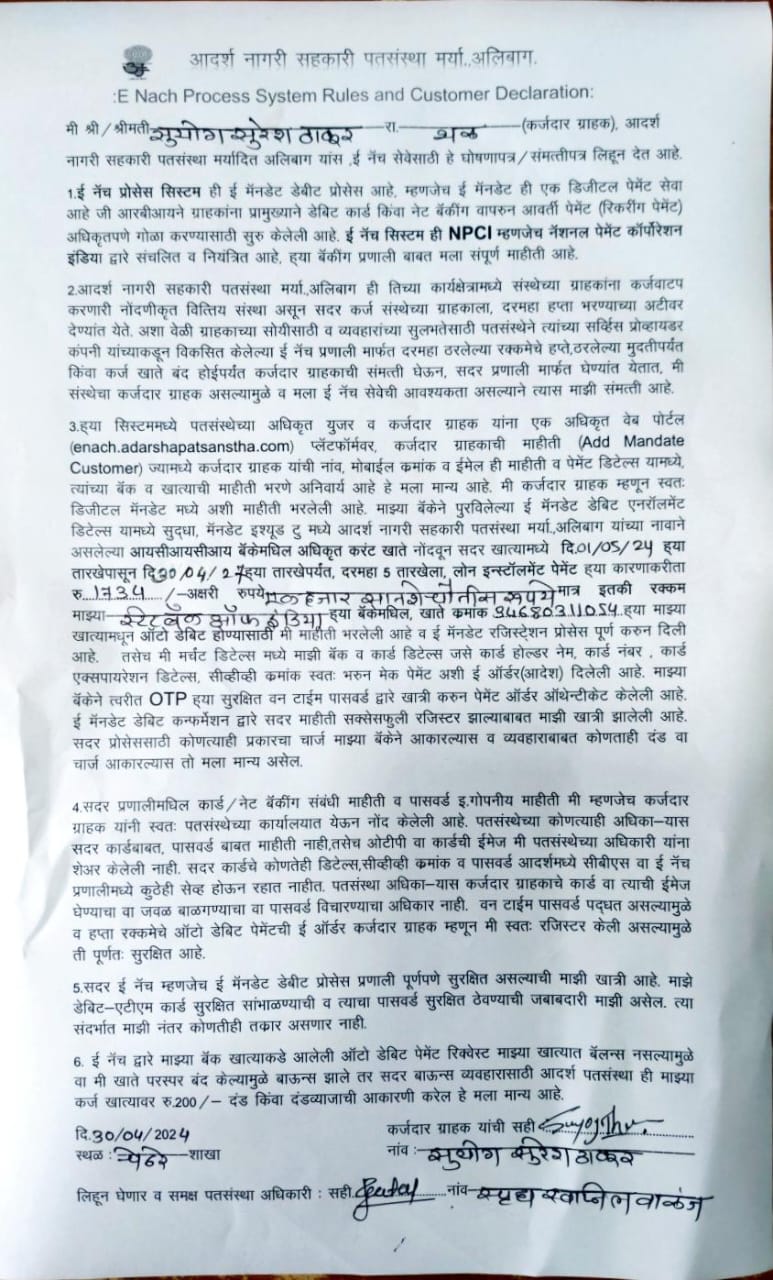 आदर्श नागरी सहकारी पतसंस्था मर्या.,अलिबाग.
:E Nach Process System Rules and Customer Declaration:
मी श्री/श्रीमती सुयोग सुरेश ठाकूर रा. थळ (कर्जदार ग्राहक), आदर्श
नागरी सहकारी पतसंस्था मर्यादित अलिबाग यांस ,ई नॅच सेवेसाठी हे घोषणापत्र/संमत्तीपत्र लिहून देत आहे.
1.ई नॅंच प्रोसेस सिस्टम ही ई मॅनडेट डेबीट प्रोसेस आहे, म्हणजेच ई मॅनडेट ही एक डिजीटल पेमेंट सेवा
आहे जी आरबीआयने ग्राहकांना प्रामुख्याने डेबिट कार्ड किंवा नेट बॅकींग वापरुन आवर्ती पेमेंट (रिकरींग पेमेंट)
अधिकृतपणे गोळा करण्यासाठी सुरु केलेली आहे. ई नॅच सिस्टम ही NPCI म्हणजेच नॅशनल पेमेंट कॉर्पोरेशन
इंडिया द्वारे संचलित व नियंत्रित आहे, ह्या बॅकींग प्रणाली बाबत मला संपूर्ण माहीती आहे.
2.आदर्श नागरी सहकारी पतसंस्था मर्या.,अलिबाग ही तिच्या कार्यक्षेत्रामध्ये संस्थेच्या ग्राहकांना कर्जवाटप
करणारी नोंदणीकृत वित्तिय संस्था असून सदर कर्ज संस्थेच्या ग्राहकाला, दरमहा हप्ता भरण्याच्या अटीवर
देण्यांत येते. अशा वेळी ग्राहकाच्या सोयीसाठी व व्यवहारांच्या सुलभतेसाठी पतसंस्थेने त्यांच्या सर्व्हिस प्रोव्हायडर
कंपनी यांच्याकडून विकसित केलेल्या ई नॅच प्रणाली मार्फत दरमहा ठरलेल्या रक्कमेचे हप्ते,ठरलेल्या मुदतीपर्यत
किंवा कर्ज खाते बंद होईपर्यंत कर्जदार ग्राहकाची संमत्ती घेऊन, सदर प्रणाली मार्फत घेण्यांत येतात, मी
संस्थेचा कर्जदार ग्राहक असल्यामुळे व मला ई नॅच सेवेची आवश्यकता असल्याने त्यास माझी संमत्ती आहे.
3.ह्या सिस्टममध्ये पतसंस्थेच्या अधिकृत युजर व कर्जदार ग्राहक यांना एक अधिकृत वेब पोर्टल
(enach.adarshapatsanstha.com) प्लॅटफॉर्मवर, कर्जदार ग्राहकाची माहीती (Add Mandate
Customer) ज्यामध्ये कर्जदार ग्राहक यांची नांव, मोबाईल क्रमांक व ईमेल ही माहीती व पेमेंट डिटेल्स यामध्ये,
त्यांच्या बॅंक व खात्याची माहीती भरणे अनिवार्य आहे हे मला मान्य आहे. मी कर्जदार ग्राहक म्हणून स्वतः
डिजीटल मॅनडेट मध्ये अशी माहीती भरलेली आहे. माझ्या बॅकेने पुरविलेल्या ई मॅनडेट डेबिट एनरॉलमेंट
डिटेल्स यामध्ये सुद्धा, मॅनडेट इश्यूड टु मध्ये आदर्श नागरी सहकारी पतसंस्था मर्या.,अलिबाग यांच्या नावाने
असलेल्या आयसीआयसीआय बॅकेमधिल अधिकृत करंट खाते नोंदवून सदर खात्यामध्ये दि.01/05/24 ह्या
तारखेपासून दि30/04/27ह्या तारखेपर्यंत, दरमहा 5 तारखेला, लोन इन्स्टॉलमेंट पेमेंट ह्या कारणाकरीता
रु.1734/-अक्षरी रुपये एक हजार सातशे चौतीस रुपये मात्र इतकी रक्कम
माझ्या स्टेट बँक ऑफ इंडिया ह्या बॅकेमधिल, खाते क्रमांक 34680311054.ह्या माझ्या
खात्यामधून ऑटो डेबिट होण्यासाठी मी माहीती भरलेली आहे व ई मॅनडेट रजिस्ट्रेशन प्रोसेस पूर्ण करुन दिली
आहे. तसेच मी मर्चट डिटेल्स मध्ये माझी बॅंक व कार्ड डिटेल्स जसे कार्ड होल्डर नेम, कार्ड नंबर , कार्ड
एक्सपायरेशन डिटेल्स, सीव्हीव्ही क्रमांक स्वतः भरुन मेक पेमेंट अशी ई ऑर्डर(आदेश) दिलेली आहे. माझ्या
बॅकेने त्वरीत OTP ह्या सुरक्षित वन टाईम पासवर्ड द्वारे खात्री करुन पेमेंट ऑर्डर ऑथेन्टीकेट केलेली आहे.
ई मॅनडेट डेबिट कन्फर्मेशन द्वारे सदर माहीती सक्सेसफुली रजिस्टर झाल्याबाबत माझी खात्री झालेली आहे.
सदर प्रोसेससाठी कोणत्याही प्रकारचा चार्ज माझ्या बॅकेने आकारल्यास व व्यवहाराबाबत कोणताही दंड वा
चार्ज आकारल्यास तो मला मान्य असेल.
4.सदर प्रणालीमधिल कार्ड/नेट बॅकींग संबंधी माहीती व पासवर्ड इ.गोपनीय माहीती मी म्हणजेच कर्जदार
ग्राहक यांनी स्वतः पतसंस्थेच्या कार्यालयात येऊन नोंद केलेली आहे. पतसंस्थेच्या कोणत्याही अधिका–यास
सदर कार्डबाबत, पासवर्ड बाबत माहीती नाही,तसेच ओटीपी वा कार्डची ईमेज मी पतसंस्थेच्या अधिकारी यांना
शेअर केलेली नाही. सदर कार्डचे कोणतेही डिटेल्स,सीव्हीव्ही क्रमांक व पासवर्ड आदर्शमध्ये सीबीएस वा ई नॅच
प्रणालीमध्ये कुठेही सेव्ह होऊन रहात नाहीत. पतसंस्था अधिका–यास कर्जदार ग्राहकाचे कार्ड वा त्याची ईमेज
घेण्याचा वा जवळ बाळगण्याचा वा पासवर्ड विचारण्याचा अधिकार नाही. वन टाईम पासवर्ड पद्धत असल्यामुळे
व हप्ता रक्कमेचे ऑटो डेबिट पेमेंटची ई ऑर्डर कर्जदार ग्राहक म्हणून मी स्वतः रजिस्टर केली असल्यामुळे
ती पूर्णतः सुरक्षित आहे.
5.सदर ई नॅच म्हणजेच ई मॅनडेट डेबीट प्रोसेस प्रणाली पूर्णपणे सुरक्षित असल्याची माझी खात्री आहे. माझे
डेबिट–एटीएम कार्ड सुरक्षित सांभाळण्याची व त्याचा पासवर्ड सुरक्षित ठेवण्याची जबाबदारी माझी असेल. त्या
संदर्भात माझी नंतर कोणतीही तकार असणार नाही.
6. ई नॅच द्वारे माझ्या बॅंक खात्याकडे आलेली ऑटो डेबिट पेमेंट रिक्वेस्ट माझ्या खात्यात बॅलन्स नसल्यामुळे
वा मी खाते परस्पर बंद केल्यामुळे बाऊन्स झाले तर सदर बाऊन्स व्यवहारासाठी आदर्श पतसंस्था ही माझ्या
कर्ज खात्यावर रु.200/– दंड किंवा दंडव्याजाची आकारणी करेल हे मला मान्य आहे.
दि.30/04/2024 कर्जदार ग्राहक यांची सही
स्थळ : चेंढरे शाखा नांव : सुयोग सुरेश ठाकूर
लिहून घेणार व समक्ष पतसंस्था अधिकारी : सही नांव स्वप्निल वाळंज